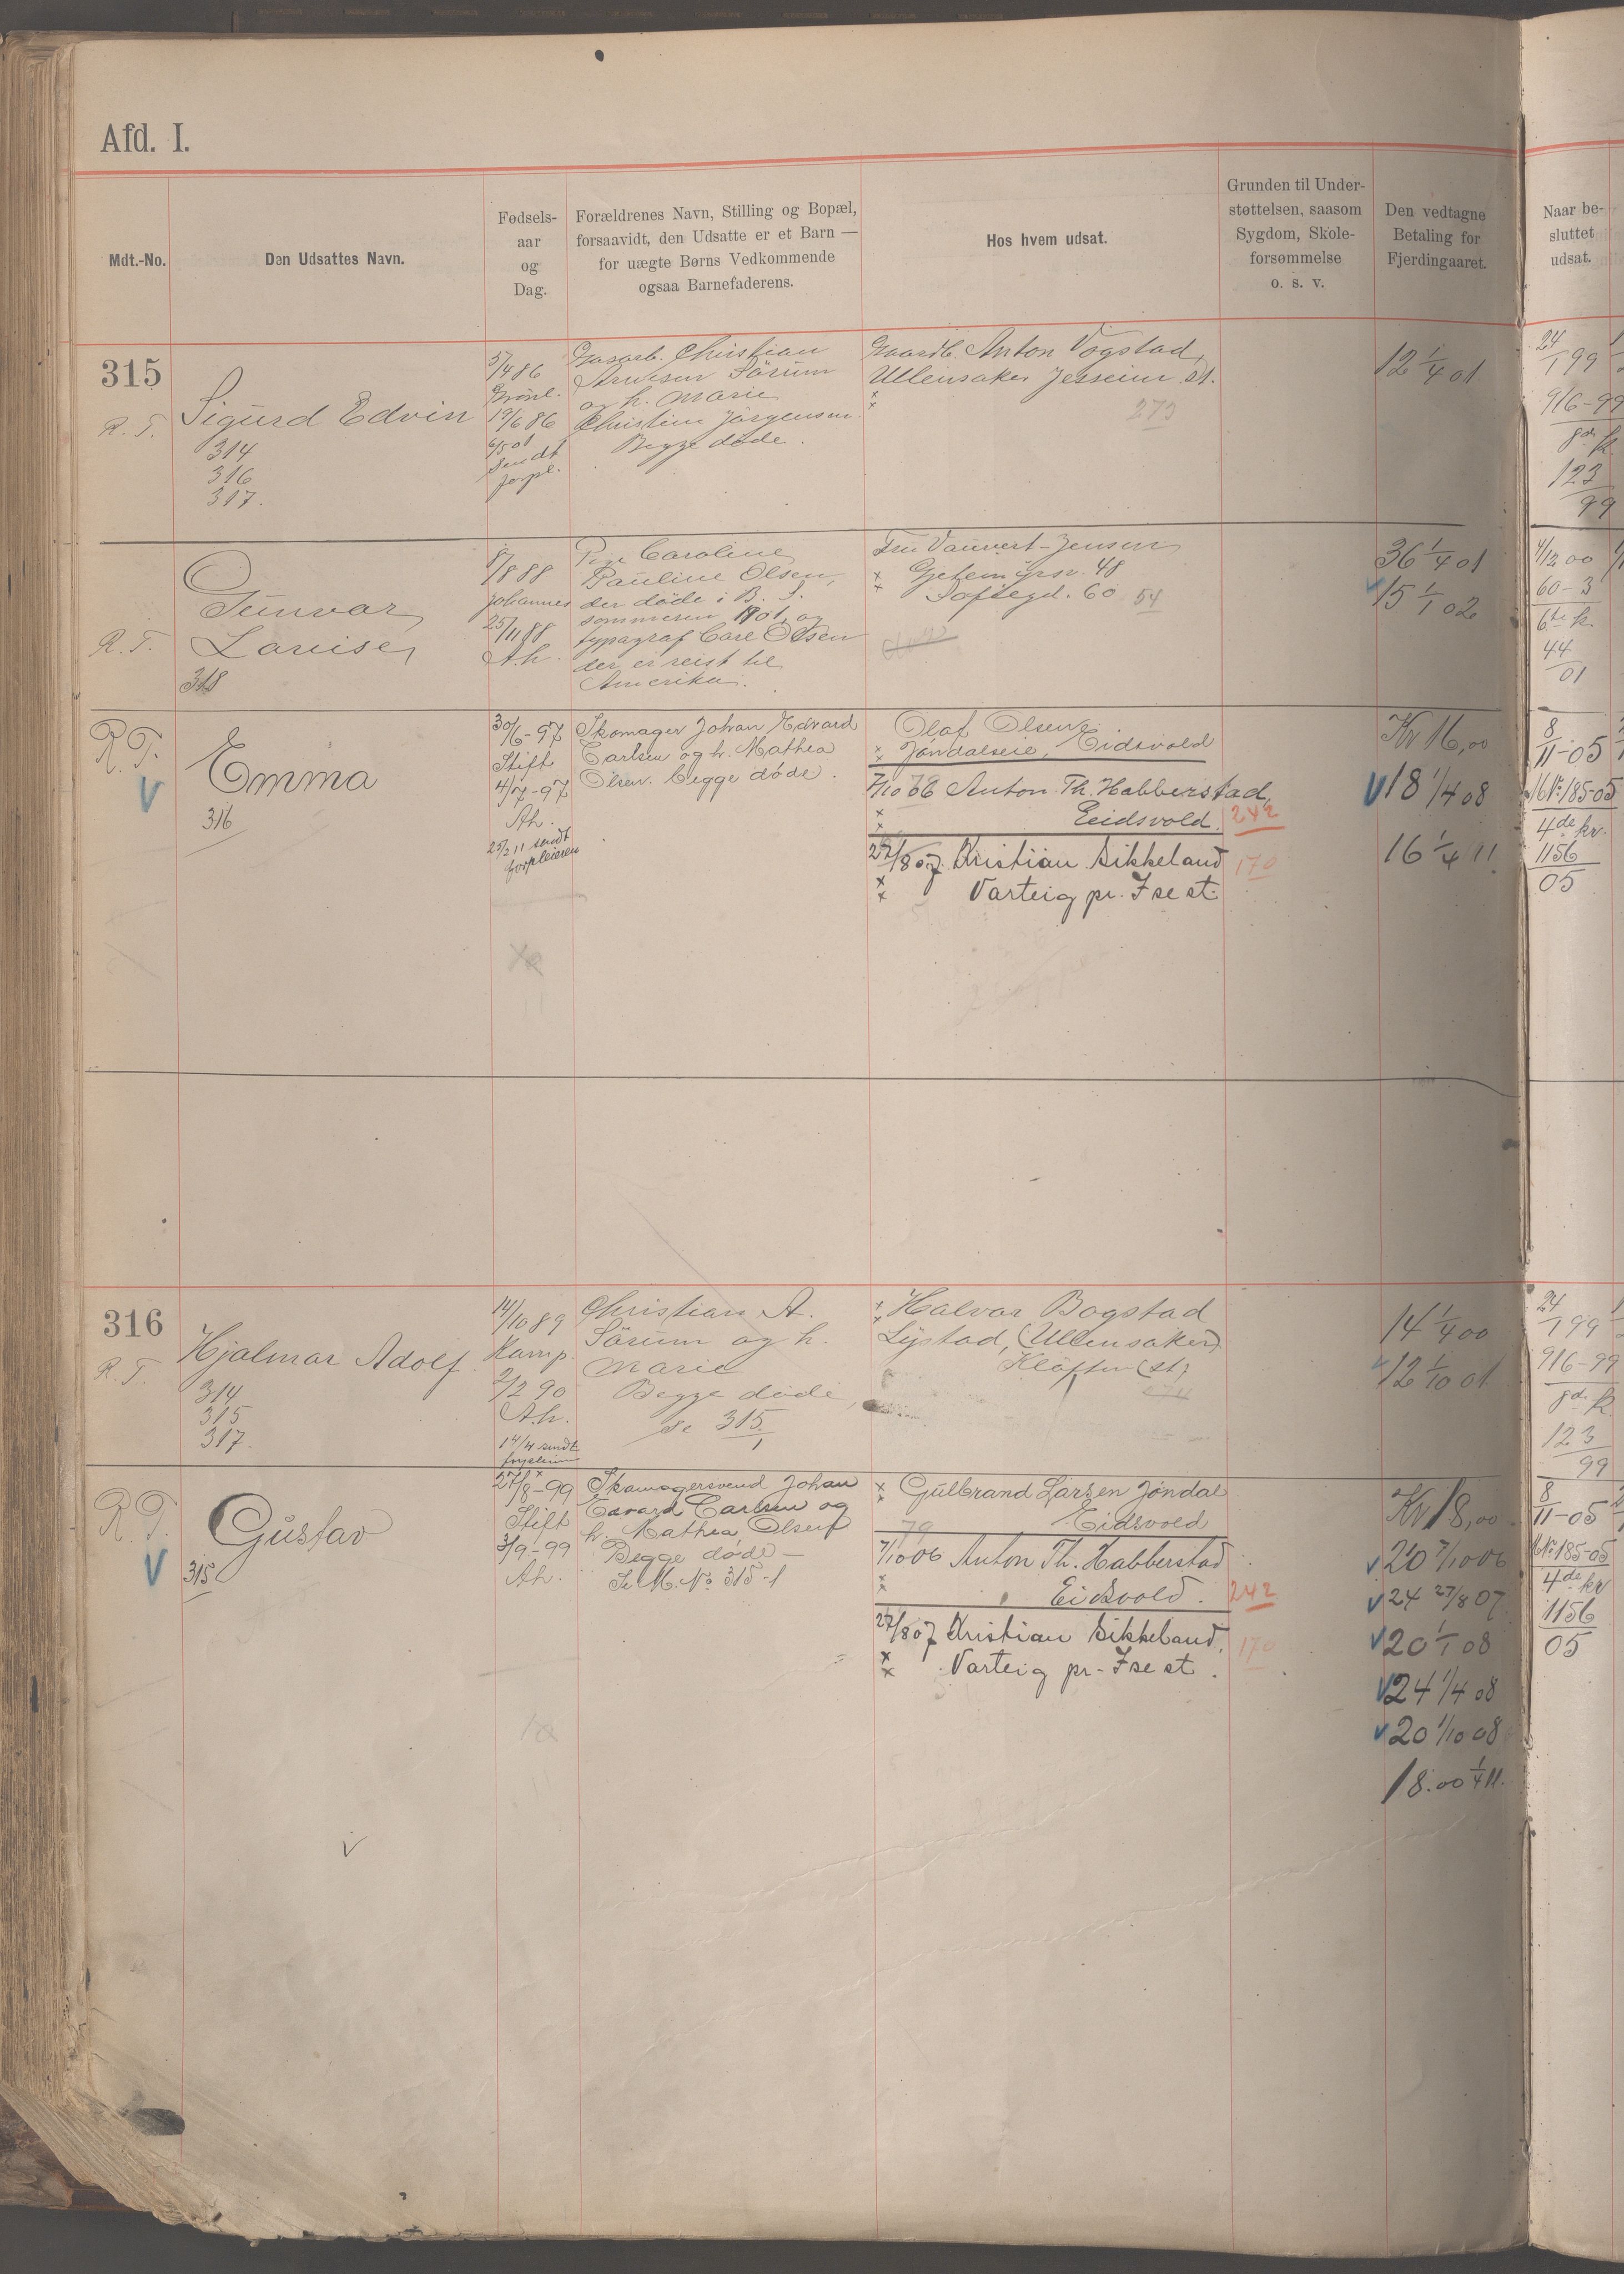 Afd. I.
Mdt.-No.
Den Udsattes Navn.
Fødsels-
aar
og
Dag.
Forældrenes Navn, Stilling og Bopæl,
forsaavidt, den Udsatte er et Barn —
for uægte Børns Vedkommende
ogsaa Barnefaderens.
Hos hvem udsat.
Grunden til Under-
støttelsen, saasom
Sygdom, Skole-
forsømmelse
o. s. v.
Den vedtagne
Betaling for
Fjerdingaaret.
Naar be-
sluttet
udsat.
315
R. T.
Sigurd Edvin
314
316
317.
5/4 86
Grönl.
19/6 86
6/5 01
Sendt
forpl.
Christian
Arntsen Sörum
og h. Marie
Christine Jörgensen
Begge døde.
Gaardb. Anton Vogstad,
Ullensaker Jesseim st.
273
12 1/4 01
24
1 99
916-99
123
99
R. T.
Gunvor
Lovise
318
8/8 88
Johannes
25/11 88
A.h.
Pige Caroline
Pauline Olsen,
der døde i B. S.
sommeren 1901, og
typograf Carl Olsen
der er reist til
Amerika.
Fru Vauvert-Jensen
48
Toftegd. 60 54
36 1/4 01
15 1/1 02
4/12 00
60-3
6te k.
44
01
R. T.
V
Emma
316
30/6-97
Stift
4/7-97
Ah.
25/2 11 sendt
forpleieren
Skomager Johan Edvard
Carlsen og h. Mathea
Olsen. begge døde.
Olaf Olsen
Jøndalseie, Eidsvold
7/10 06 Anton Th. Habberstad,
Eidsvold. 242
27/8 07 Kristian Sikkeland
Varteig pr. Ise st. 170
Kr 16,00
V 18 1/4 08
16 1/4 11
8
11-05
No 185-05
4de kr.
1156
05
316
R. T.
Hjalmar Adolf
314
315
317.
14/10 89
Kamp.
2/2 90
A.h.
14/4 sendt
Christian A.
Sörum og h.
Marie
Begge døde,
se 315/1
Halvor Bogstad
Lystad, (Ullensaker)
Kløften (st)
14 1/4 00
12 1/10 01
24
1 99
916-99
123
99
R. T.
V
Gustav
315
27/8-99
Stift
3/9-99
Ah.
Skomagersvend Johan
Edvard Carlsen og
h. Mathea Olsen
Begge døde —
Se M. No. 315-1
Gulbrand Larsen Jøndal
79 Eidsvold
7/10 06 Anton Th. Habberstad
Eidsvold. 242
27/8 07 Kristian Sikkeland,
Varteig pr. Ise st. 170
Kr 18,00
V 20 7/10 06
V 24 27/8 07
V 20 1/1 08
V 24 1/4 08
V 20 1/10 08
18.00 1/4 11.
8
11-05
No 185-05
4de kr
1156
05
V